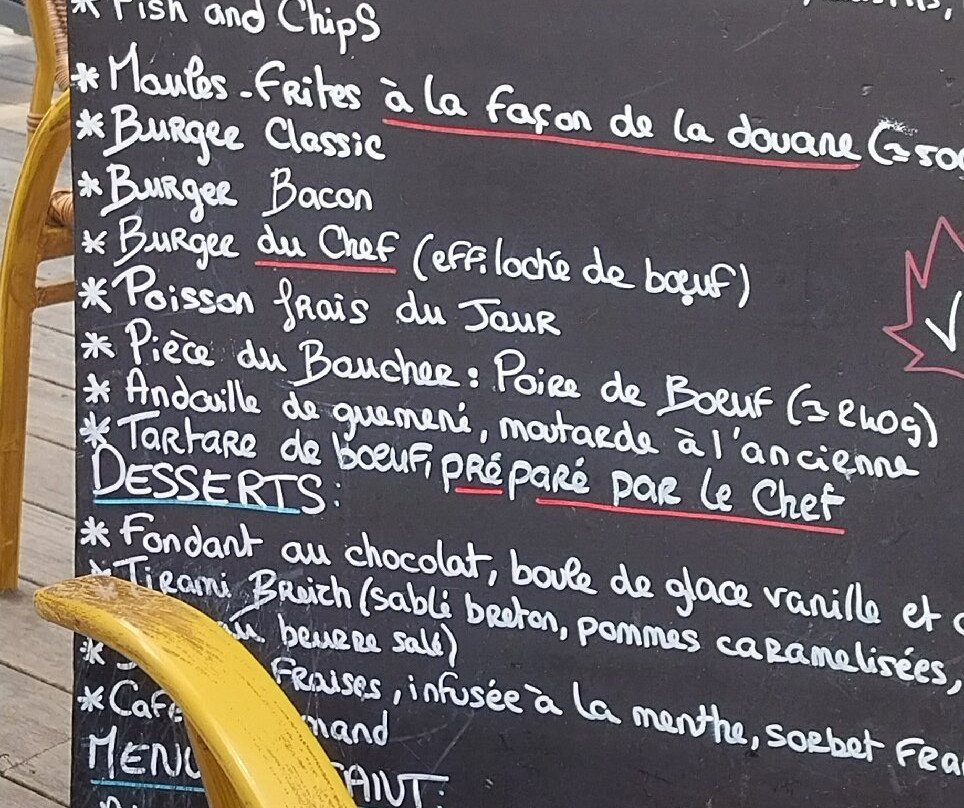 * Fish and Chips
* Moules-Frites à la façon de la douane (≃500
* Burger Classic
* Burger Bacon
* Burger du Chef (effilochée de bœuf)
* Poisson frais du Jour
* Pièce du Boucher : Poire de Boeuf (≃240g)
* Andouille de guemené, moutarde à l'ancienne
* Tartare de boeuf, préparé par le Chef
DESSERTS:
* Fondant au chocolat, boule de glace vanille et
* Tirami Breizh (sablé breton, pommes caramelisées,
beurre salé)
* Fraises, infusée à la menthe, sorbet
* Café
MENU